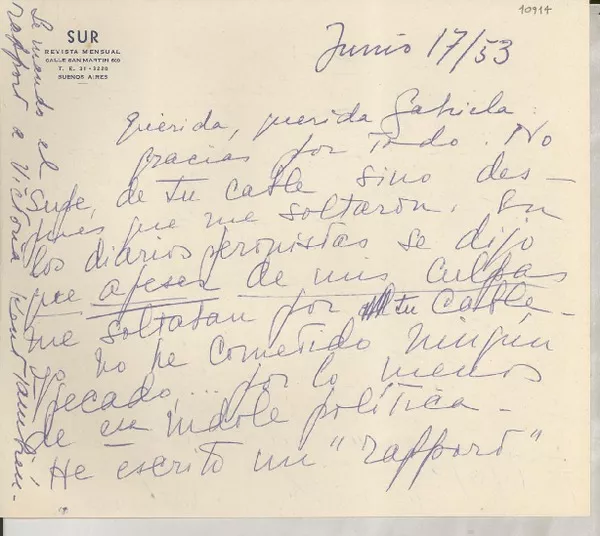 10914
SUR
REVISTA MENSUAL
CALLE SAN MARTIN 689
T. E. 31-3220
BUENOS AIRES
Junio 17/53
Querida, querida Gabriela:
gracias por todo. No
supe, de tu cable sino des-
pués que me soltaron. En
los diarios peronistas se dijo
que apesar de mis culpas
me soltaban por tu cable.
Yo no he cometido ningún
pecado... por lo menos
de índole política.
He escrito un "rapport"
Le mando el
rapport a Victoria Kent también.